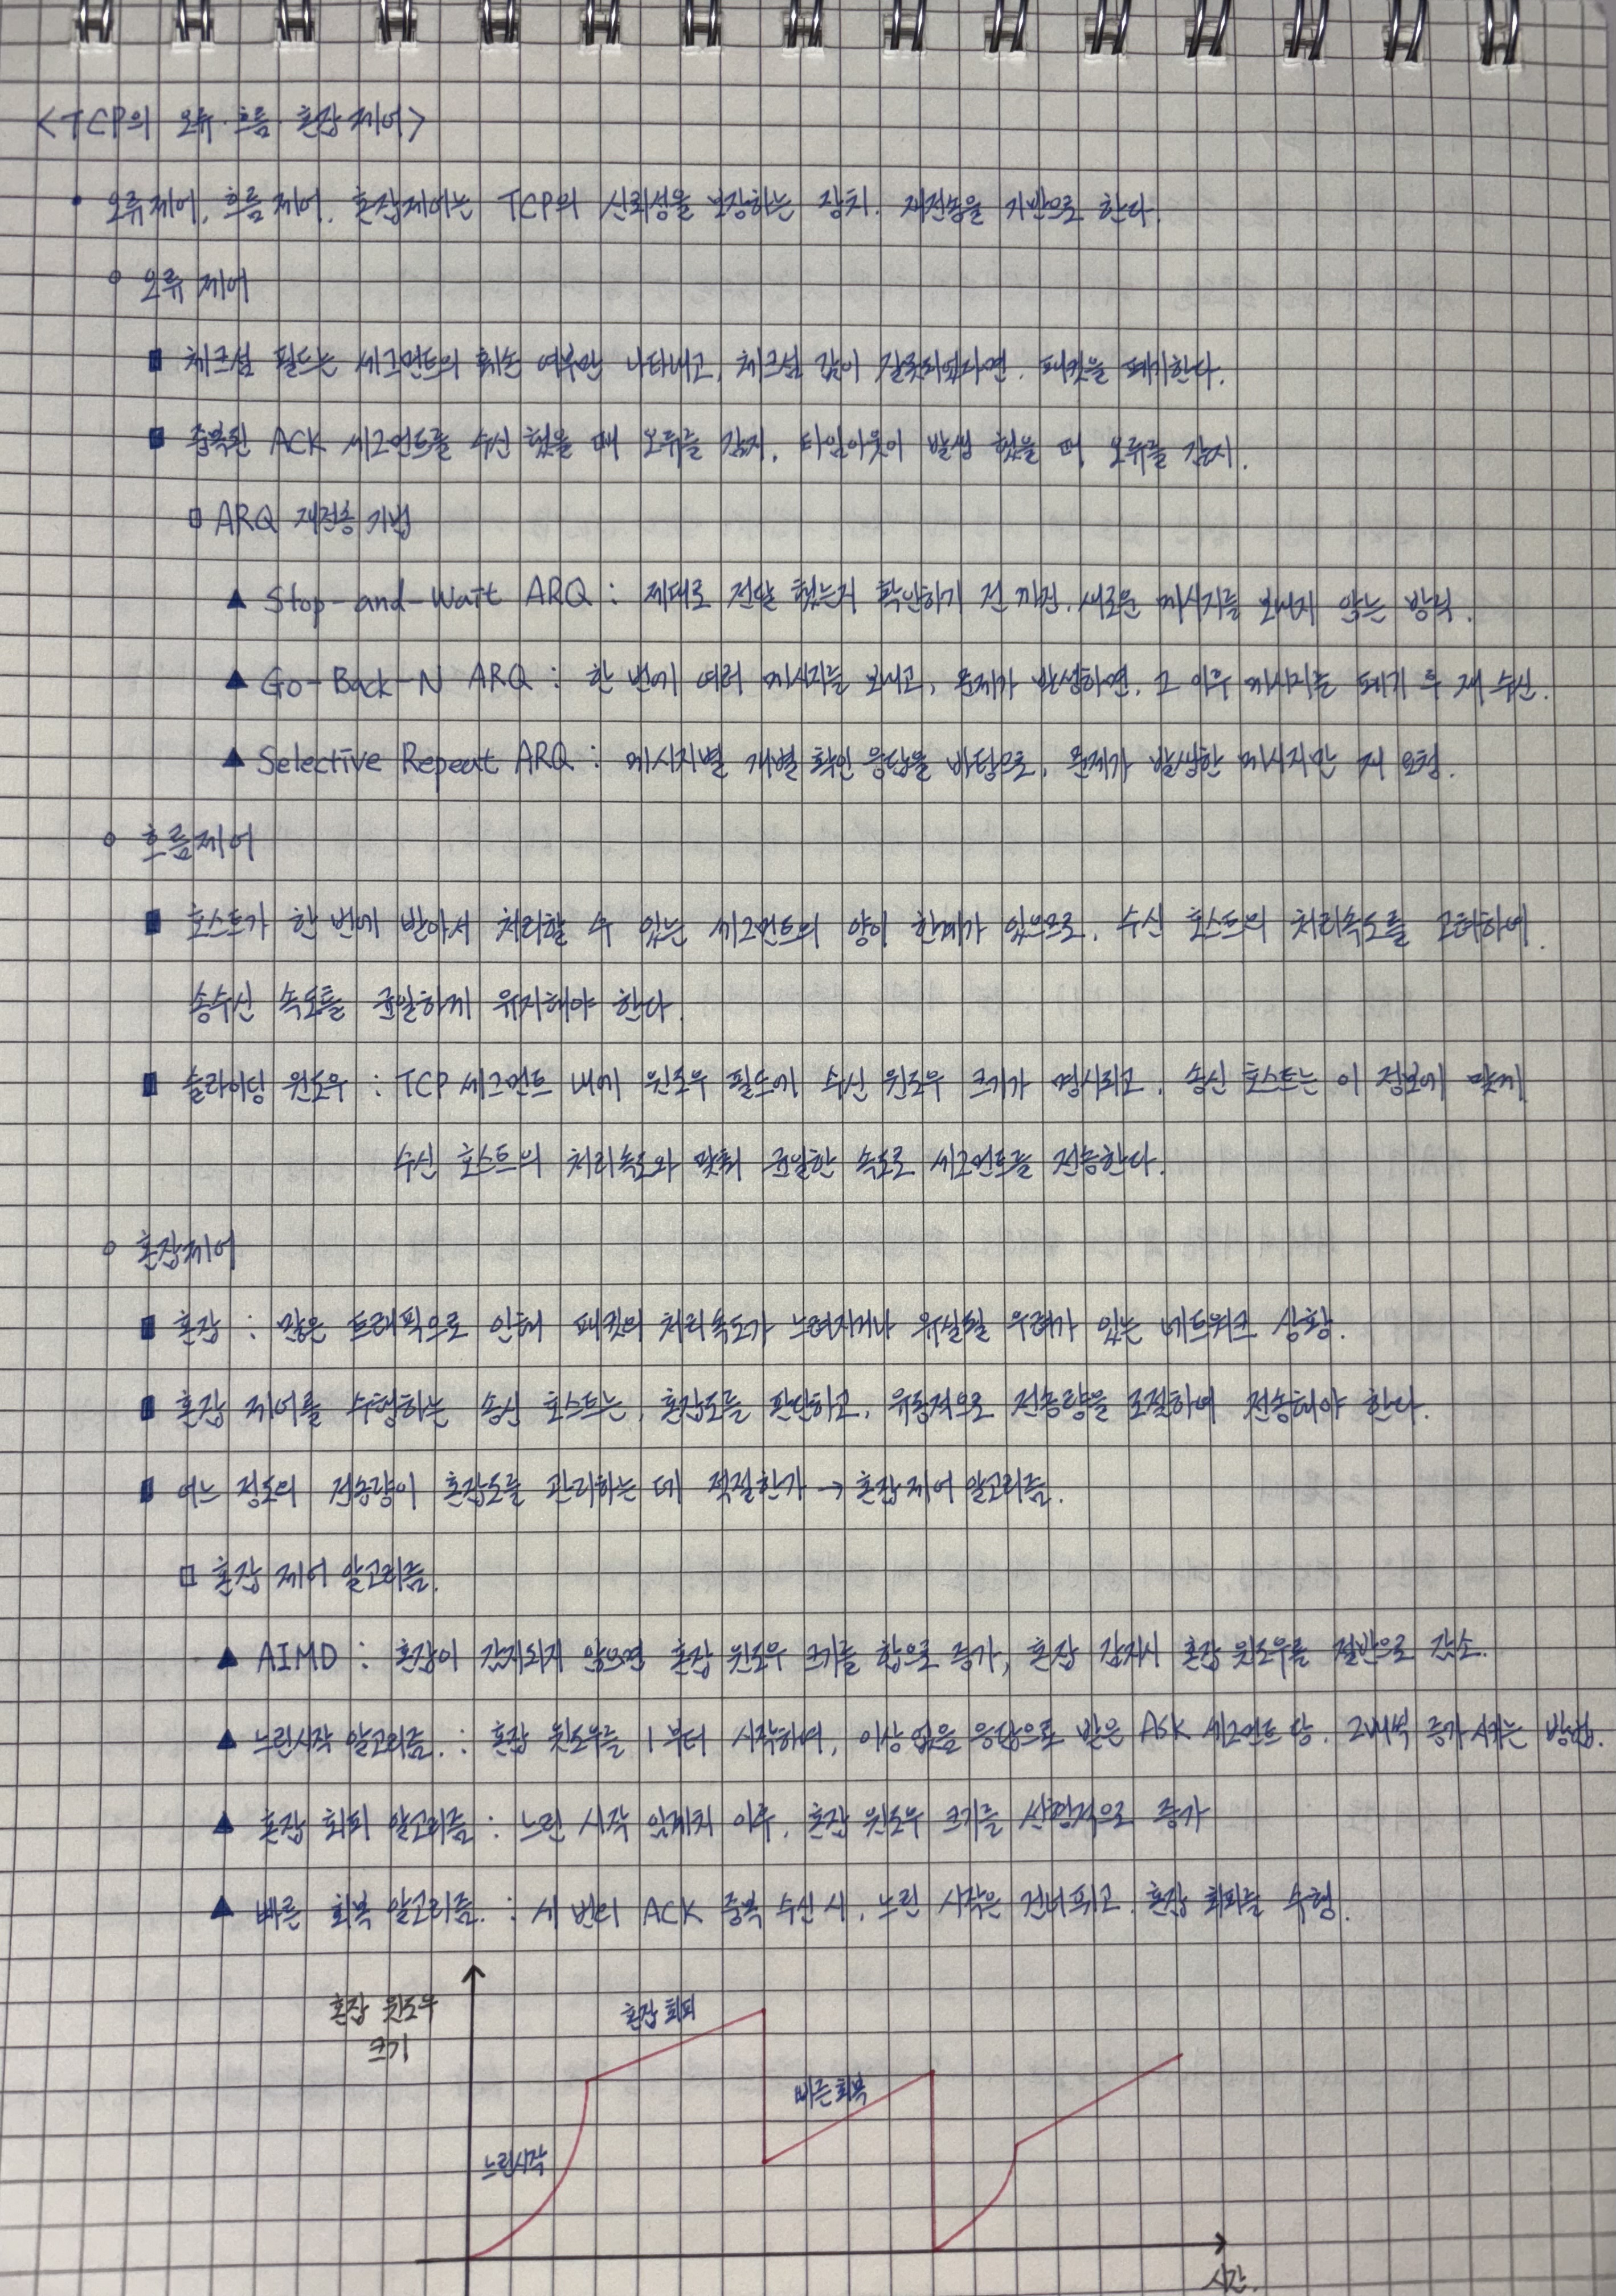 <TCP의 오류·흐름·혼잡 제어>
• 오류 제어, 흐름 제어, 혼잡제어는 TCP의 신뢰성을 보장하는 장치. 재전송을 기반으로 한다.
○ 오류 제어
■ 체크섬 필드는 세그먼트의 훼손 여부만 나타내고, 체크섬 값이 잘못되었다면, 패킷을 폐기한다.
■ 중복된 ACK 세그먼트를 수신 했을 때 오류를 감지, 타임아웃이 발생 했을 때, 오류를 감지.
□ ARQ 재전송 기법
▲ Stop-and-Wait ARQ : 제대로 전달 했는지 확인하기 전 까진, 새로운 메시지를 보내지 않는 방식.
▲ Go-Back-N ARQ : 한 번에 여러 메시지를 보내고, 문제가 발생하면, 그 이후 메시지는 폐기 후 재 수신.
▲ Selective Repeat ARQ : 메시지별 개별 확인 응답을 바탕으로, 문제가 발생한 메시지만 재 요청.
○ 흐름제어
■ 호스트가 한 번에 받아서 처리할 수 있는 세그먼트의 양이 한계가 있으므로, 수신 호스트의 처리속도를 고려하여,
송수신 속도를 균일하게 유지해야 한다.
■ 슬라이딩 윈도우 : TCP 세그먼트 내에 윈도우 필드에 수신 윈도우 크기가 명시되고, 송신 호스트는 이 정보에 맞게
수신 호스트의 처리속도와 맞춰 균일한 속도로 세그먼트를 전송한다.
○ 혼잡제어
■ 혼잡 : 많은 트래픽으로 인해 패킷의 처리속도가 느려지거나 유실될 우려가 있는 네트워크 상황.
■ 혼잡 제어를 수행하는 송신 호스트는, 혼잡도를 판단하고, 유동적으로 전송량을 조절하여 전송해야 한다.
■ 어느 정도의 전송량이 혼잡도를 관리하는 데 적절한가 → 혼잡 제어 알고리즘.
□ 혼잡 제어 알고리즘.
▲ AIMD : 혼잡이 감지되지 않으면 혼잡 윈도우 크기를 합으로 증가, 혼잡 감지시 혼잡 윈도우를 절반으로 감소.
▲ 느린시작 알고리즘. : 혼잡 윈도우를 1 부터 시작하여, 이상 없을 응답으로 받은 ASK 세그먼트 당, 2배씩 증가 시키는 방법.
▲ 혼잡 회피 알고리즘 : 느린 시작 임계치 이후, 혼잡 윈도우 크기를 선형적으로 증가
▲ 빠른 회복 알고리즘. : 세 번의 ACK 중복 수신 시, 느린 시작은 건너뛰고, 혼잡 회피를 수행.
혼잡 윈도우
크기
혼잡 회피
빠른 회복
느린시작
시간.